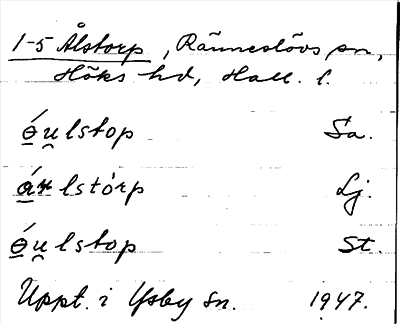 1-5 Ålstorp, Ränneslövs sn,
Höks hd, Hall. l.
ó̲u̯lstop Sa.
á̲u̯lstórp Lj.
ó̲u̯lstop St.
Uppt. i Ysby sn. 1947.